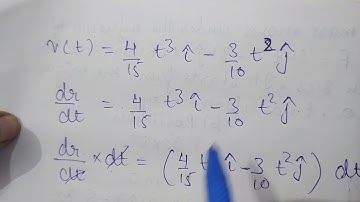 v(t) = 4/15 t³ î - 3/10 t² ĵ
dr/dt = 4/15 t³ î - 3/10 t² ĵ.
dr/dt × dt = (4/15 t î - 3/10 t² ĵ) dt